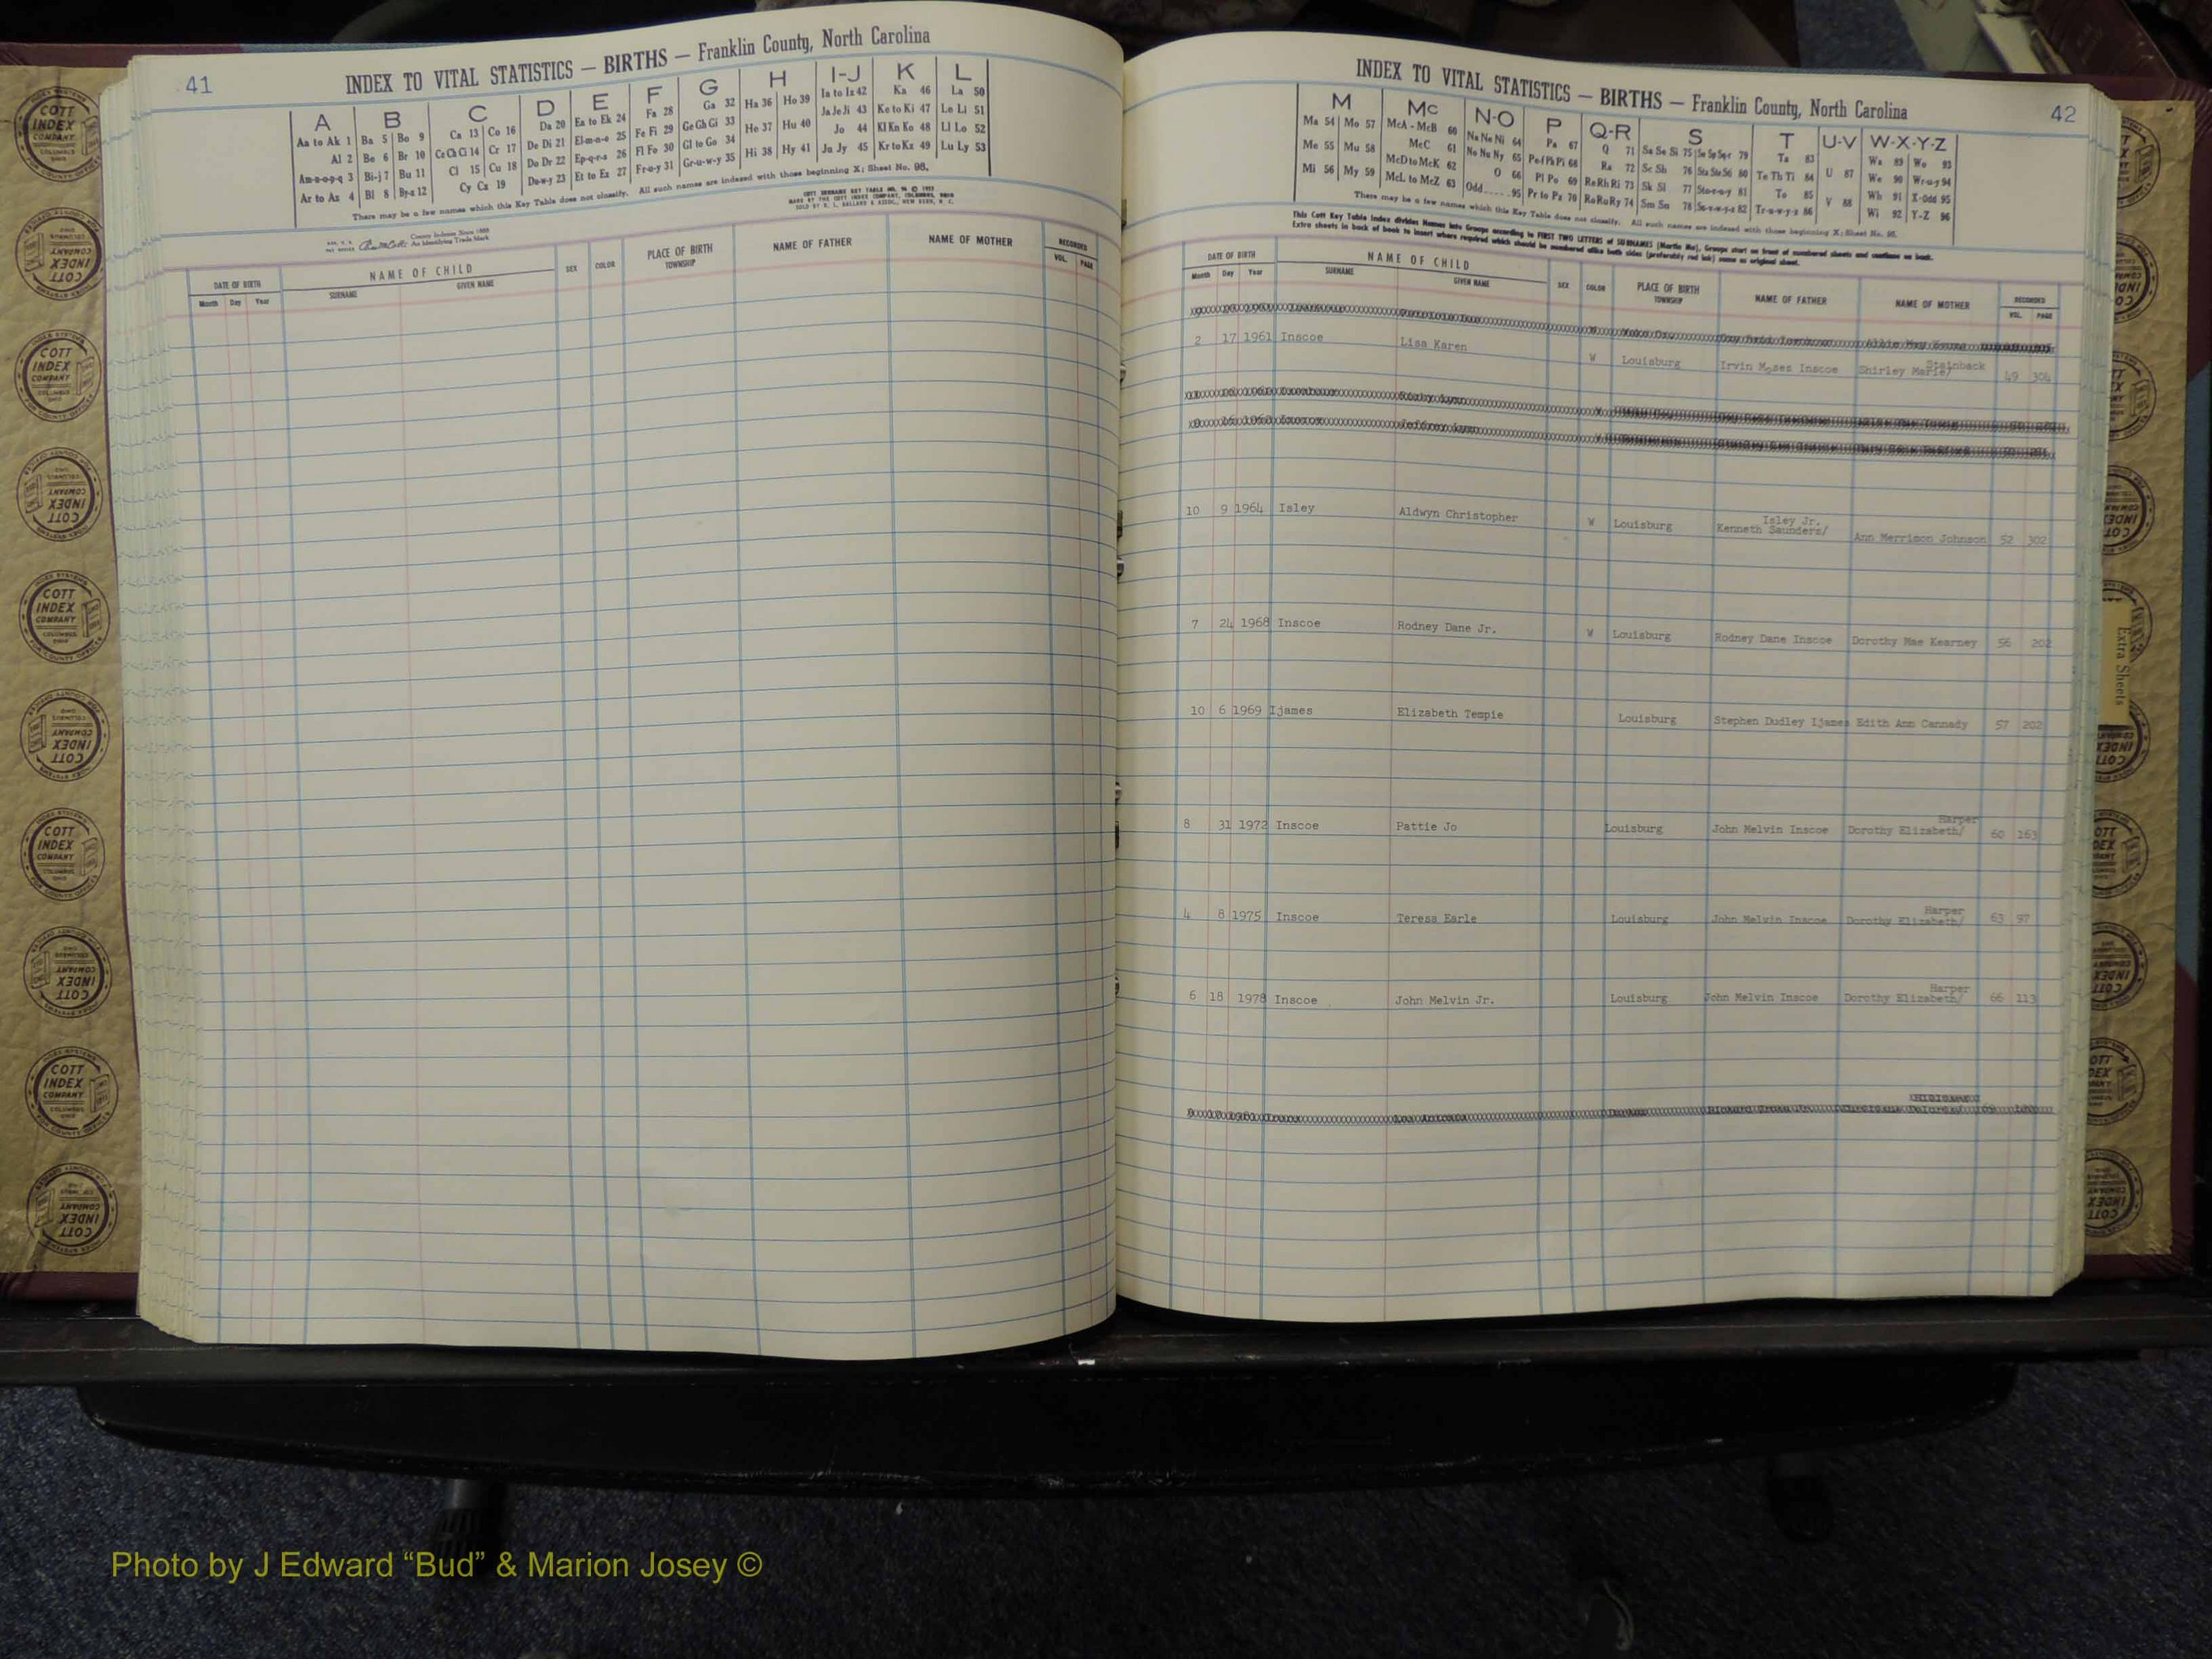 41
INDEX TO VITAL STATISTICS — BIRTHS — Franklin County, North Carolina
A B C D E F G H I-J K L
Aa to Ak 1 Ba 5 Bo 9 Ca 13 Co 16 Da 20 Ea to Ek 24 Fa 28 Ga 32 Ha 36 Ho 39 Ia to Iz 42 Ka 46 La 50
Al 2 Be 6 Br 10 Ce Ch Ci 14 Cr 17 De Di 21 El-m-n-o 25 Fe Fi 29 Ge Gh Gi 33 He 37 Hu 40 Ja Je Ji 43 Ke to Ki 47 Le Li 51
Am-n-o-p-q 3 Bi-j 7 Bu 11 Cl 15 Cu 18 Do Dr 22 Ep-q-r-s 26 Fl Fo 30 Gl to Go 34 Hi 38 Hy 41 Jo 44 Kl Kn Ko 48 Ll Lo 52
Ar to Az 4 Bl 8 By-z 12 Cy Cz 19 Du-w-y 23 Et to Ez 27 Fr-u-y 31 Gr-u-w-y 35 Ju Jy 45 Kr to Kz 49 Lu Ly 53
There may be a few names which this Key Table does not classify. All such names are indexed with those beginning X; Sheet No. 95.
County Indexes Since 1888
An Identifying Trade Mark
DATE OF BIRTH NAME OF CHILD SEX COLOR PLACE OF BIRTH NAME OF FATHER NAME OF MOTHER RECORDED
Month Day Year SURNAME GIVEN NAME TOWNSHIP VOL. PAGE
INDEX TO VITAL STATISTICS — BIRTHS — Franklin County, North Carolina
42
M Mc N-O P Q-R S T U-V W-X-Y-Z
Ma 54 Mo 57 McA - McB 60 Na Ne Ni 64 Pa 67 Q 71 Sa Se Si 75 79 Ta 83 U 87 Wa 89 Wo 93
Me 55 Mu 58 McC 61 No Nu Ny 65 Pe Ph Pi 68 Ra 72 Sc Sh 76 Sta Ste Sti 80 Te Th Ti 84 V 88 We 90 Wr-u-y 94
Mi 56 My 59 McD to McK 62 O 66 Pl Po 69 Re Rh Ri 73 Sk Sl 77 Sto-r-u-y 81 To 85 Wh 91 X-Odd 95
McL to McZ 63 Odd 95 Pr to Pz 70 Ro Ru Ry 74 Sm Sn 78 82 Tr-u-w-y-z 86 Wi 92 Y-Z 96
There may be a few names which this Key Table does not classify. All such names are indexed with those beginning X; Sheet No. 95.
This Cott Key Table Index divides Names into Groups according to FIRST TWO LETTERS of SURNAMES (Martin Ma), Groups start on front of numbered sheets and continue on back.
Extra sheets in back of book to insert where required which should be numbered alike both sides (preferably red ink) same as original sheet.
DATE OF BIRTH NAME OF CHILD SEX COLOR PLACE OF BIRTH NAME OF FATHER NAME OF MOTHER RECORDED
Month Day Year SURNAME GIVEN NAME TOWNSHIP VOL. PAGE
2 17 1961 Inscoe Lisa Karen W Louisburg Irvin Moses Inscoe Shirley Marie/ Stainback 49 304
10 9 1964 Isley Aldwyn Christopher W Louisburg Kenneth Saunders/ Isley Jr. Ann Merrimon Johnson 52 302
7 24 1968 Inscoe Rodney Dane Jr. W Louisburg Rodney Dane Inscoe Dorothy Mae Kearney 56 202
10 6 1969 Ijames Elizabeth Tempie Louisburg Stephen Dudley Ijames Edith Ann Cannady 57 202
8 31 1972 Inscoe Pattie Jo Louisburg John Melvin Inscoe Dorothy Elizabeth/ Harper 60 163
4 8 1975 Inscoe Teresa Earle Louisburg John Melvin Inscoe Dorothy Elizabeth/ Harper 63 97
6 18 1978 Inscoe John Melvin Jr. Louisburg John Melvin Inscoe Dorothy Elizabeth/ Harper 66 113
Extra Sheets
COTT INDEX COMPANY
COLUMBUS OHIO
Photo by J Edward “Bud” & Marion Josey ©